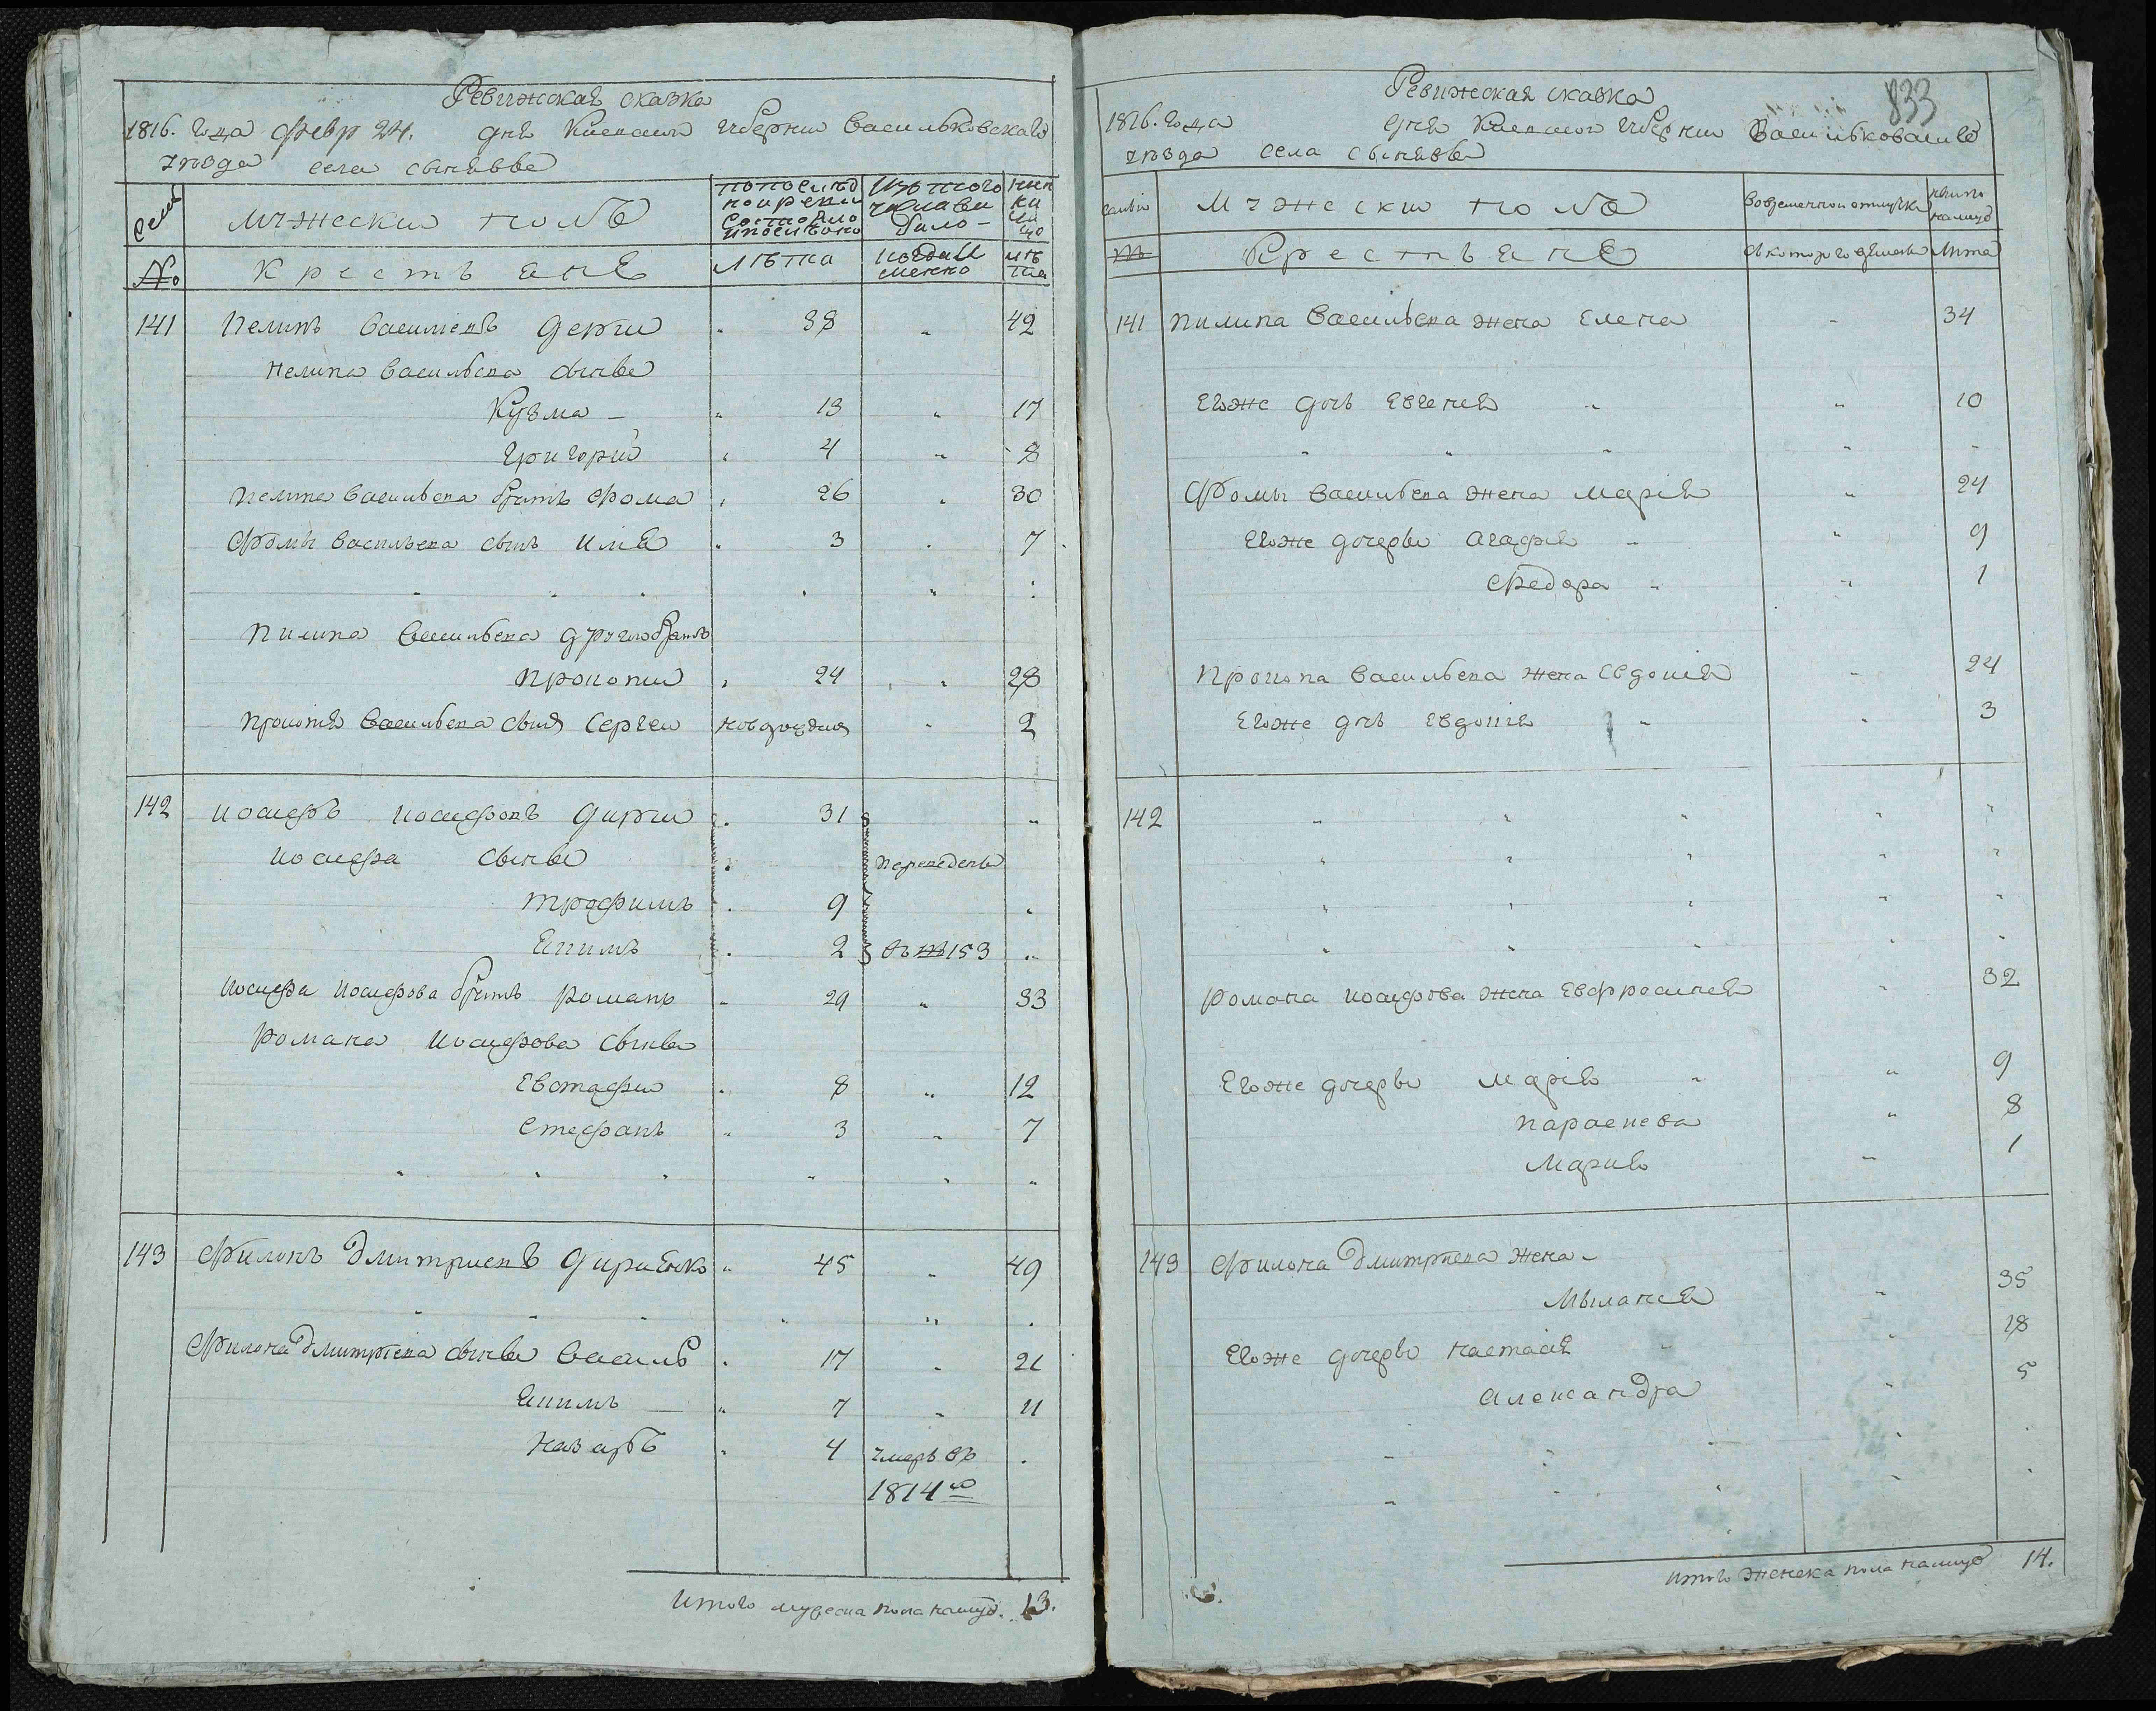 Ревижская сказка
1816. года Февр 24. дня Киевской губернии Васильковскаго
уезда села сынявы
семьи
мужески полъ
по последней ревизии состояло
Изъ того числа выбыло
ныне на лицо
№ Крестьяне
лѣта
когда именно
лѣта
141 Пелипъ Васильевъ Держи " 38 " 42
Пелипа Васильева сынве
Кузма — " 13 " 17
Григорий " 4 " 8
Пелипа Васильева братъ Фома " 26 " 30
Фомы Васильева сынъ Илия " 3 " 7
Пилипа Васильева другой братъ
Прокопи " 24 " 28
Прокопия Васильева сынъ Сергеи новорожден " 2
142 Иосифъ Иосифовъ Диржи " 31 "
Иосифа сынве " переведены
Трофимъ " 9 "
Екимъ " 2 въ № 153 "
Иосифа Иосифова братъ Романъ " 29 " 33
Романа Иосифова сынве
Евстафи " 8 " 12
Стефанъ " 3 " 7
143 Филонъ Дмитриевъ " 45 " 49
Филона Дмитриева сынве Василь " 17 " 21
Екимъ — " 7 " 11
Назаръ " 4 умеръ въ "
1814го
Итого мужеска пола налицо. 13.
833
Ревижская сказка
1816. года дня Киевской губернии Васильковскаго
уезда села сынявы
семьи
Мужески полъ
Во временной отлучке
ныне налицо
№ Крестьяне
съ которого времени
Лѣта
141 Пилипа Васильева жена Елена " 34
Егоже дочь Евгения " " 10
Фомы Васильева жена Мария " 24
Егоже дочерве Агафия " " 9
Федора " " 1
Прокопа Васильева жена Евдокия " 24
Егоже дочь Евдокия " " 3
142
Романа Иосифова жена Евфросиния " 32
Егоже дочерве Мария " " 9
Параскева " 8
Мария " 1
143 Филона Дмитриева жена -
Мыланея " 35
Егоже дочерве Настасия " 18
Александра " 5
Итого женска пола налицо 14.